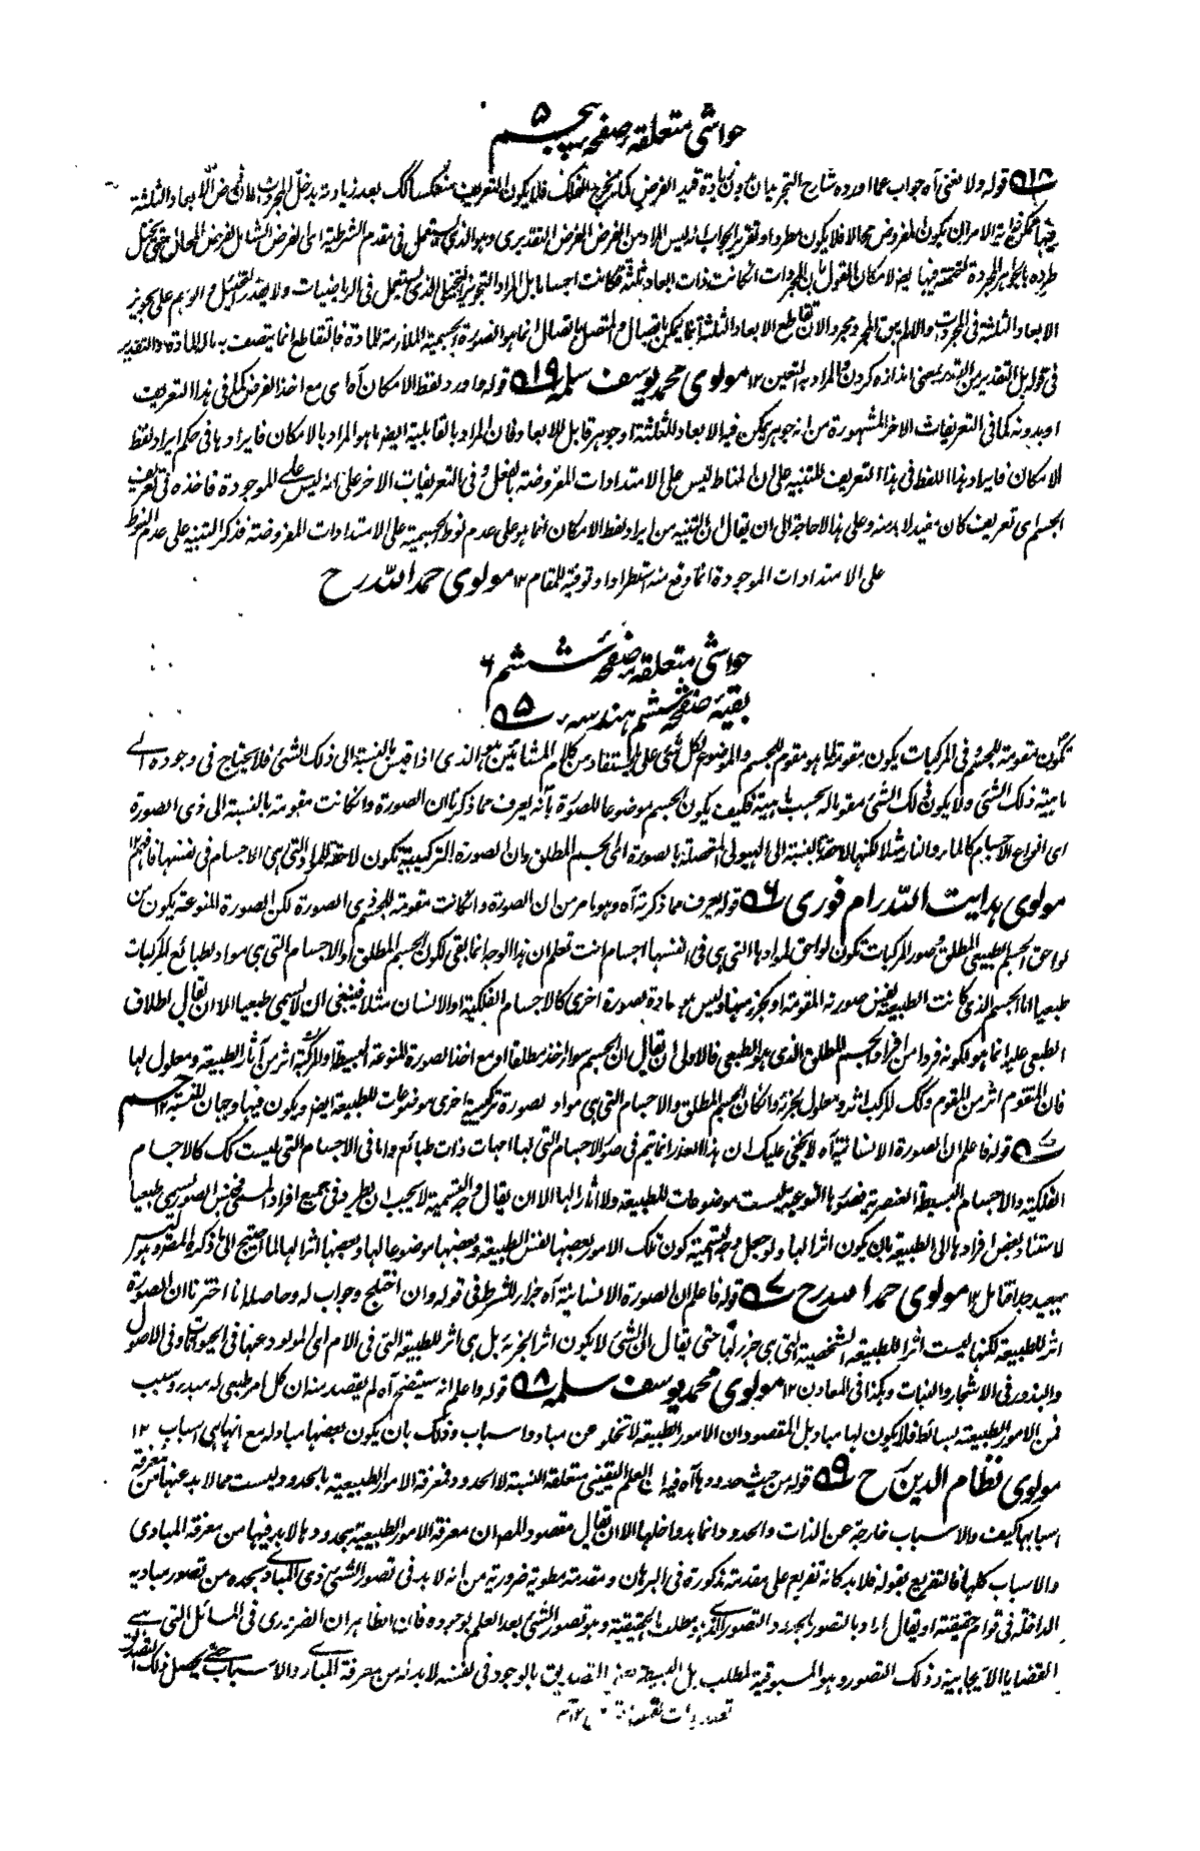 حواشی متعلقہ صفحہ پنجم ۵
۵۱۸ قوله ولا يخفى آه جواب عما اورده شارح التجريد بان بدون زيادة قيد الفرض كما يخرج الفلك فلا يكون التعريف منعكسا كذلك بعد زيادته يدخل المجردات اذ فرض الابعاد الثلثة
فيها ممكن غاية الامر ان يكون المفروض محالا فلا يكون مطردا وتقرير الجواب انه ليس المراد من الفرض الفرض التقديرى وهو الذى يستعمل فى مقدم الشرطية اى الفرض الشامل لفرض المحال حتى يختل
طرده بالجواهر المجردة لتحققه فيها ايضا لامكان القول بان المجردات ان كانت ذات ابعاد ثلثة لكانت اجساما بل المراد التجويز العقلى الذى يستعمل فى الرياضيات ولا يقدر العقل والوهم على تجويز
الابعاد الثلثة فى المجردات والا لم يبق المجرد مجردا لان تقاطع الابعاد الثلثة انما يمكن باتصال والمتصل بالاتصال انما هو الصورة الجسمية الملازمة للمادة فالتقاطع انما يتصف به المادة والتقدير
فى قوله بل التقدير من القدر بمعنى اندازه كردن والمراد به التعين ١٢ مولوی محمد یوسف سلمه ۵۱۹ قوله واورد لفظ الامكان آه اى مع اخذ الفرض كما فى هذا التعريف
او بدونه كما فى التعريفات الاخر المشهورة من انه جوهر يمكن فيه الابعاد الثلثة او جوهر قابل للابعاد فان المراد بالقابلية ايضا ما هو المراد بالامكان فايرادها فى حكم ايراد لفظ
الامكان فايراد هذا اللفظ فى هذا التعريف للتنبيه على ان المناط ليس على الامتدادات المفروضة بالفعل وفى التعريفات الاخر على انه ليس على الموجودة فاخذه فى تعريف
الجسم اى تعريف كان مفيد لا بد منه وعلى هذا لا حاجة الى ان يقال ان التنبيه من ايراد لفظ الامكان انما هو على عدم نوط الجسمية على الامتدادات المفروضة فذكر التنبيه على عدم النوط
على الامتدادات الموجودة انما وقع منه استطرادا وتوفية للمقام ١٢ مولوی حمد الله رح
حواشی متعلقہ صفحۂ ششم ۶
بقیۂ صفحۂ ششم ہندسہ ۵۵
تكون مقومة للجسم وفى المركبات يكون مقومة لما هو مقوم للجسم والموضوع لكل شئ على ما يستفاد من كلام المشائين هو الذى اذا قيس بالنسبة الى ذلك الشئ فلا يحتاج فى وجوده الى
ماهية ذلك الشئ ولا يكون ذلك الشئ مقوما له بحسب ماهيته فكيف يكون الجسم موضوعا للصورة بأنه يعرف مما ذكرنا ان الصورة وان كانت مقومة بالنسبة الى ذى الصورة
اى انواع الاجسام كالماء والنار مثلا لكنها لاحقة بالنسبة الى الهيولى المتحصلة بالصورة الى الجسم المطلق وان الصورة التركيبية تكون لاحقة للمواد التى هى الاجسام فى نفسها فافهم ١٢
مولوی هدایت الله رام فوری ۵۶ قوله يعرف مما ذكرته آه وهو ما مر من ان الصورة وان كانت مقومة للجسم ذى الصورة لكن الصورة المنوعة يكون من
لواحق الجسم الطبيعى المطلق وصور المركبات تكون لواحق لموادها التى هى فى انفسها اجسام انت تعلم ان هذا الوجه انما بقى لكون الجسم المطلق او الاجسام التى هى مواد لطبائع المركبات
طبعيا اما الجسم الذى كانت الطبيعة نفس صورته المقومة او كجزء منها وليس هو مادة بصورة اخرى كالاجسام الفلكية او الانسان مثلا فينبغى ان لا يسمى طبعيا الا ان يقال اطلاق
الطبعى عليه انما هو لكونه فردا من افراد الجسم المطلق الذى هو الطبعى فالاولى ان يقال ان الجسم سواء اخذ مطلقا او مع اخذ الصورة المنوعة البسيطة او المركبة اثر من آثار الطبيعة ومعلول لها
فان المتقوم اثر من المقوم وكذلك المركب اثر ومعلول لجزئه وان كان الجسم المطلق والاجسام التى هى مواد لصورة تركيبية اخرى موضوعات للطبيعة ايضا ويكون فيها وجهان للتسمية ١٢ حمد
۵۷ قوله فاعلم ان الصورة الانسانية آه لا يخفى عليك ان هذا العذر انما يتم فى صور الاجسام التى لها اجهات ذات طبائع واما فى الاجسام التى ليست كذلك كالاجسام
الفلكية والاجسام البسيطة العنصرية فصورها النوعية ليست موضوعات للطبيعة ولا آثارا لها الا ان يقال وجه التسمية لا يجب ان يطرد فى جميع افراد المسمى فجنس الصورة سمى طبعيا
لاستناد بعض افرادها الى الطبيعة بان يكون اثرا لها ولو جعل وجه التسمية كون تلك الامور بعضها نفس الطبيعة وبعضها موضوعا لها وبعضها اثرا لها لما احتيج الى ما ذكره المصنف وهو ليس
ببعيد جدا فتامل ١٢ مولوی حمد الله رح ۵۷ قوله فاعلم ان الصورة الانسانية آه جزاء للشرط فى قوله وان اختلج وجواب له وحاصله انا اخترنا ان الصورة
اثر للطبيعة لكنها ليست اثرا للطبيعة الشخصية التى هى جزء لها حتى يقال ان الشئ لا يكون اثرا لجزئه بل هى اثر للطبيعة التى فى الام اى المولود عنها فى الحيوانات وفى الاصول
والبذور فى الاشجار والنبات وهكذا فى المعادن ١٢ مولوی محمد یوسف سلمه ۵۸ قوله واعلم انه سيتضح آه لم يقصد منه ان كل امر طبعى له مبدء وسبب
فمن الامور الطبيعية بسائط فلا يكون لها مباد بل المقصود ان الامور الطبيعية لا تخلو عن مباد واسباب وذلك بان يكون بعضها مباد له مع انها هى اسباب ١٢
مولوی نظام الدین رح ۵۹ قوله من حيث حدودها آه فيه ان العلم اليقينى متعلقه النسبة لا الحدود فمعرفة الامور الطبيعية بالحدود ليست مما لا بد عنها من معرفة
اسبابها كيف والاسباب خارجة عن الذات والحدود انما بدواخلها الا ان يقال مقصود المص ان معرفة الامور الطبيعية بحدودها لا بد فيها من معرفة المبادى
والاسباب كلها فالتفريع بقوله فلا بد كانه تفريع على مقدمة مذكورة فى البرهان ومقدمة مطوية ضرورية من انه لا بد فى تصور الشئ ذى المبادى بحده من تصور مباديه
الداخلة فى قوام حقيقته او يقال اراد بالتصور المجرد التصور الذى هو مطلب ما الحقيقية وهو تصور الشئ بعد العلم بوجوده فان الظاهر ان الضرورى فى المسائل التى هى
القضايا الايجابية ذلك التصور وهو المسبوقية لمطلب هل البسيطة يعنى التصديق بالوجود فى نفسه لا بد له من معرفة المبادى والاسباب حتى يحصل ذلك التصديق